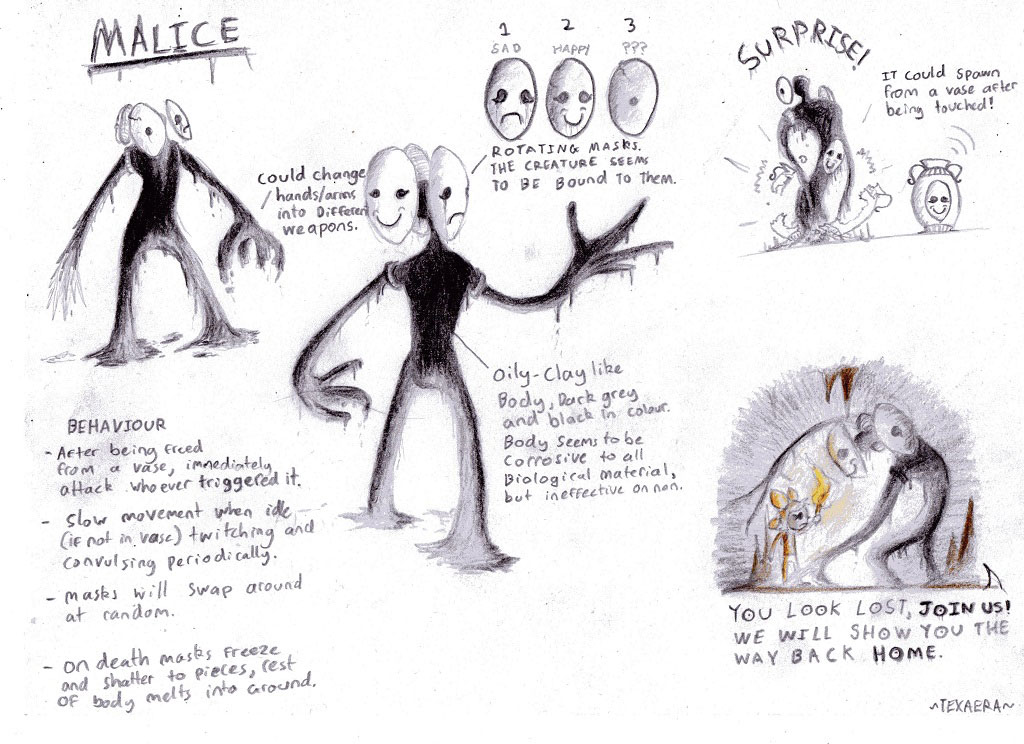 MALICE
1 2 3
SAD HAPPY ???
ROTATING MASKS.
THE CREATURE SEEMS
TO BE BOUND TO THEM.
Could change
hands/arms
into Different
weapons.
SURPRISE!
IT could spawn
from a vase after
being touched!
Oily-Clay like
Body, Dark grey
and black in colour.
Body seems to be
corrosive to all
Biological material,
but ineffective on non.
BEHAVIOUR
- After being freed
from a vase, immediately
attack whoever triggered it.
- Slow movement when idle
(if not in vase) twitching and
convulsing periodically.
- Masks will swap around
at random.
- On death masks freeze
and shatter to pieces, rest
of body melts into ground.
YOU LOOK LOST, JOIN US!
WE WILL SHOW YOU THE
WAY BACK HOME.
~TEXAERA~